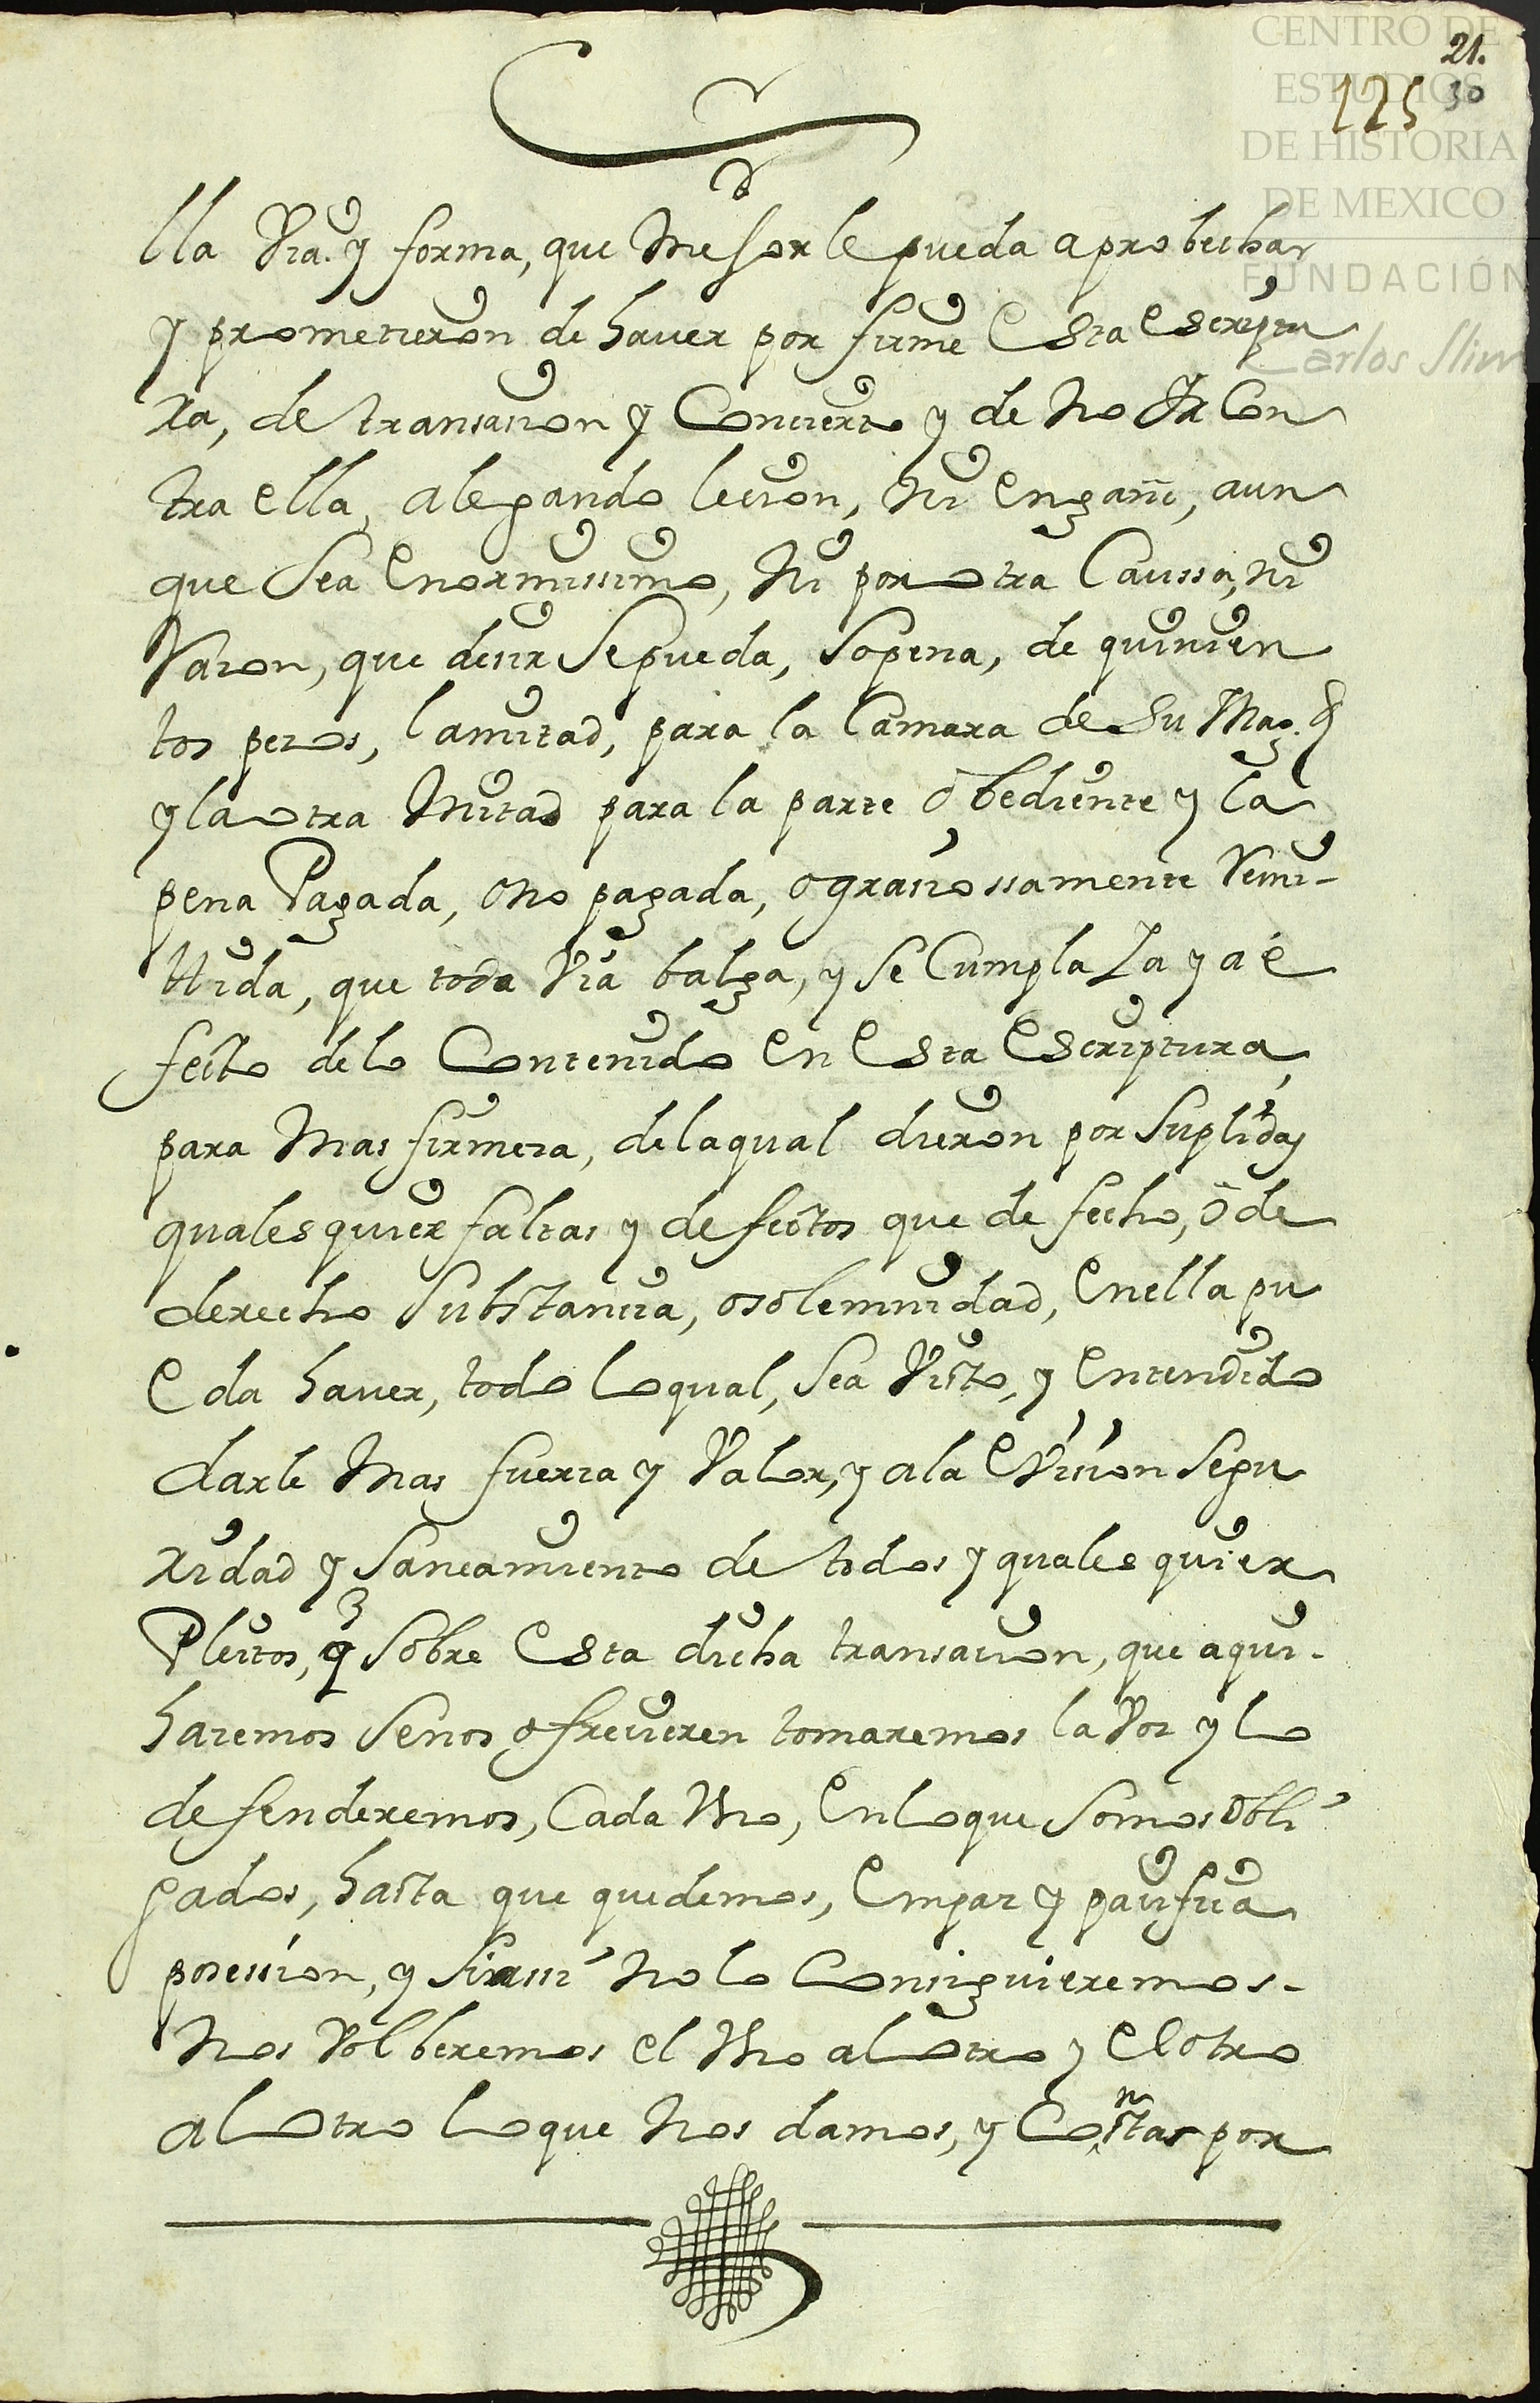 CENTRO DE
ESTUDIOS
DE HISTORIA
DE MEXICO
FUNDACIÓN
Carlos Slim
21.
125 30
lla Via. y forma, que Mejor le pueda aprobechar
y prometieron de haver por firme Esta Escriptu
ra, de transacion y Concierto y de No Ir Con
tra ella, alegando lecion, Ni Engañe, aun
que Sea Enormissimo, Ni por otra Caussa, ni
Racon, que decir Sepueda, Sopena, de quinien
tos pezos, lamitad, para la Camara de Su Mag.d
y la otra Mitad para la parte obediente y la
pena Pagada, o no pagada, o graciossamente Remi-
ttida, que toda Via balga, y Se Cumpla La ya é
fecto delo Contenido En Esta Escriptura,
para Mas firmeza, de la qual dieron por Suplidas
quales quier faltas y defectos que de fecho, ó de
derecho Substancia, o solemnidad, En ella pu
Eda haver, todo lo qual, Sea Visto, y Entendido
darle Mas fuerza y Valor, y ala Evicion Segu
ridad y Saneamiento de todos y quales quier
Pleitos, q Sobre Esta dicha transacion, que aqui-
hazemos Senos ofrecieren tomaremos la Voz y lo
defenderemos, Cada Vno, En lo que Somos Obli
gados, hasta que quedemos, Empaz y pacifica
posession, y Si assi No lo Consiguieremos-
Nos Volberemos el Vno al Otro y El otro
al Otro lo que Nos damos, y Costas por